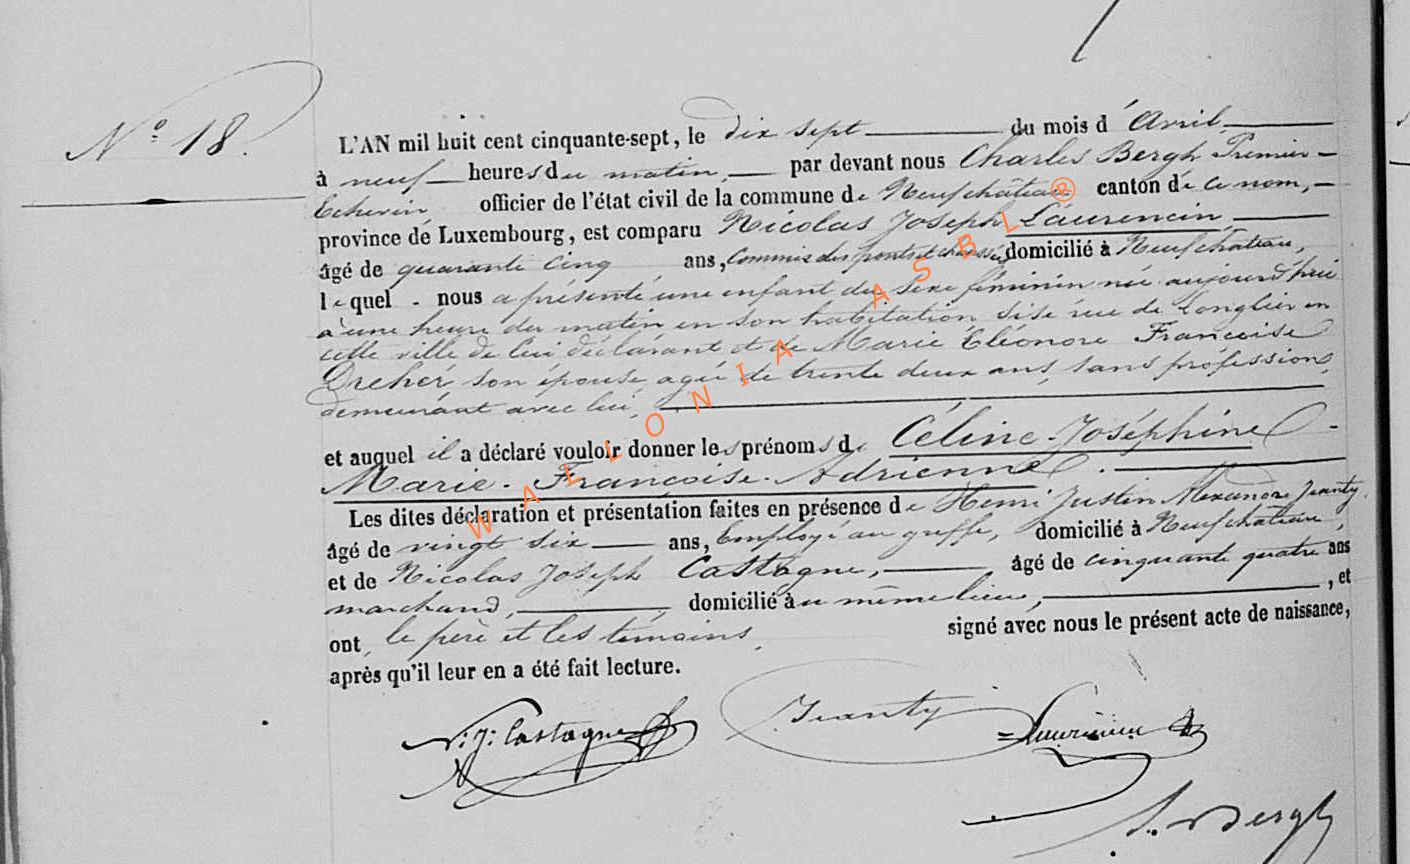 N° 18.
L'AN mil huit cent cinquante-sept, le dix sept du mois d'Avril,
à neuf heures du matin, par devant nous Charles Bergh Premier
Echevin, officier de l'état civil de la commune de Neufchâteau canton de ce nom,
province de Luxembourg, est comparu Nicolas Joseph Laurencin,
âgé de quarante cinq ans, Commis des ponts et chaussées, domicilié à Neufchâteau,
lequel nous a présenté une enfant du sexe féminin née aujourd'hui
à une heure du matin en son habitation sise rue de Longlier en
cette ville de lui déclarant et de Marie Eléonore Francoise
Dreher son épouse, agée de trente deux ans, sans profession,
demeurant avec lui,
et auquel il a déclaré vouloir donner les prénoms de Céline-Joséphine-
Marie-Françoise-Adrienne.
Les dites déclaration et présentation faites en présence de Henri Justin Alexandre Jeanty,
âgé de vingt six ans, Employé au greffe, domicilié à Neufchâteau,
et de Nicolas Joseph Castagne, âgé de cinquante quatre ans
marchand, domicilié au même lieu, et
ont, le père et les témoins, signé avec nous le présent acte de naissance,
après qu'il leur en a été fait lecture.
N: J: Castagne Jeanty Laurencin
Bergh
WALLONIA ASBL®